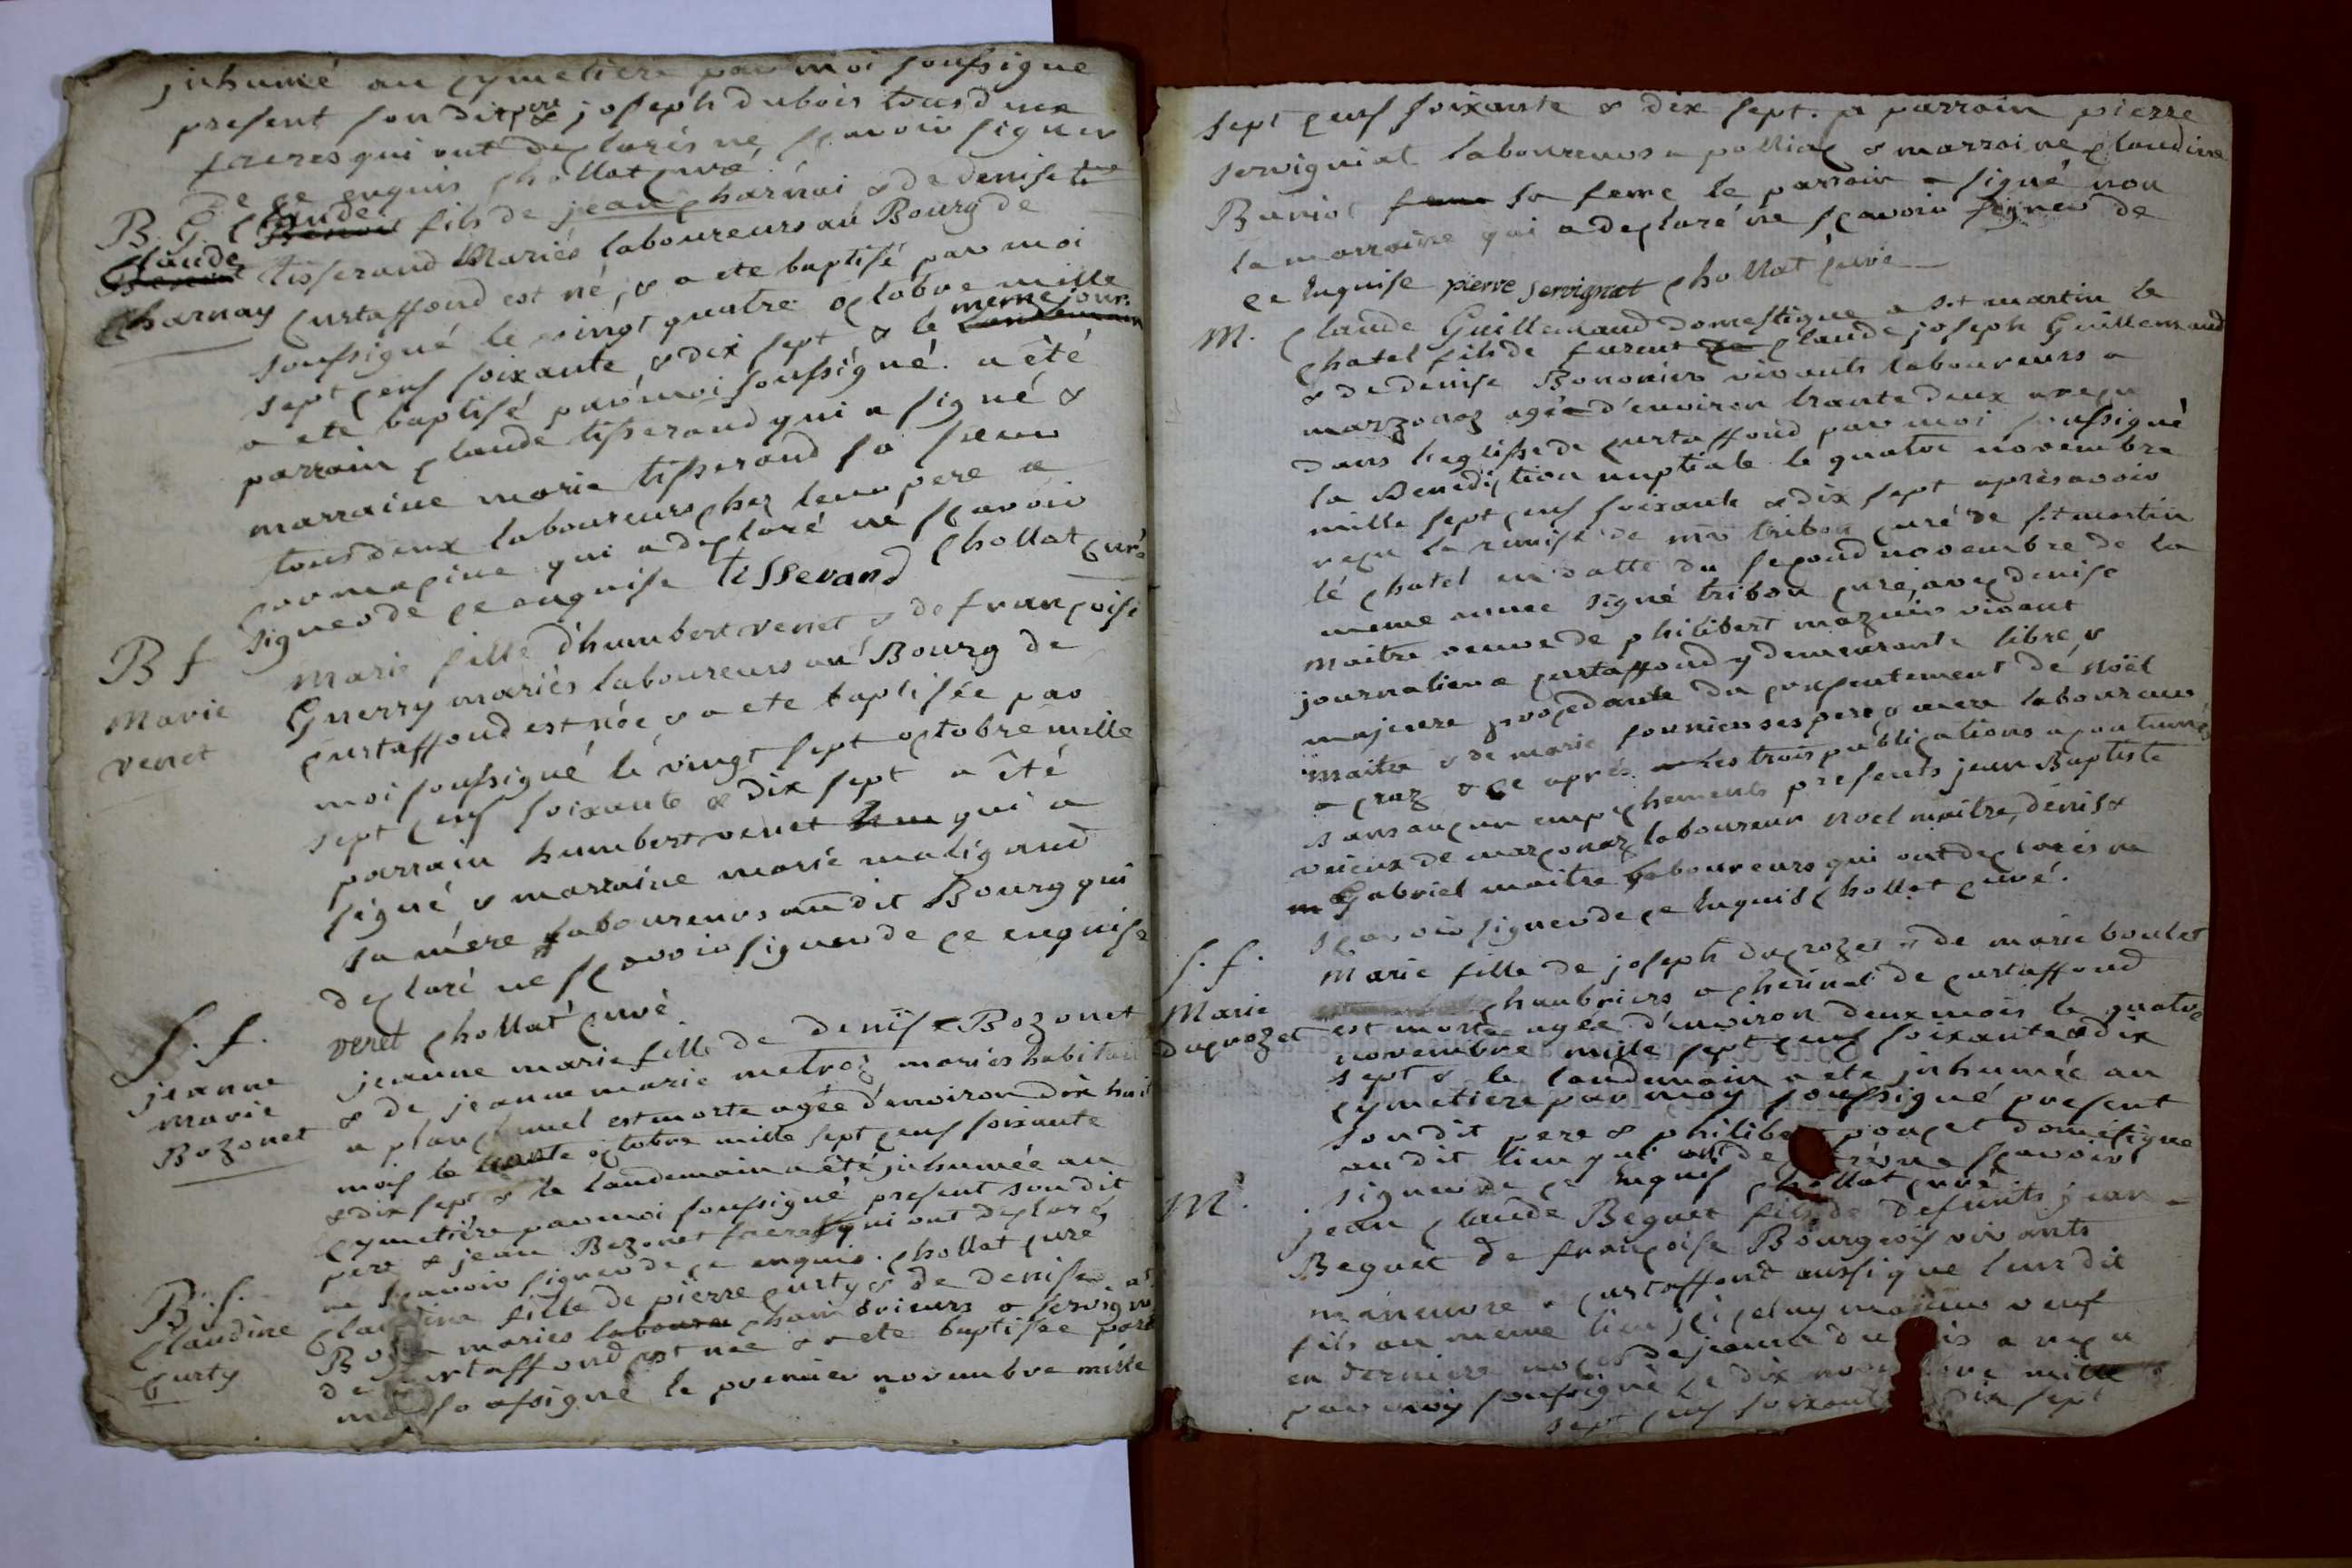 inhumé au cymetiere par moi soussigne
present son dit pere & joseph dubois tous deux
freres qui ont declarés ne scavoir signer
de ce enquis chollat curé
B. G.
Claude
Charnay
Claude fils de jean charnai & de denise
tisserand Mariés laboureurs au Bourg de
Curtaffond est né, & a ete baptisé par moi
soussigné le vingt quatre octobre mille
sept cens soixante & dix sept & le meme jour
a ete baptisé par moi soussigné. a été
parrain claude tisserand qui a signé &
marraine marie tisserand sa soeur
tous deux laboureurs chez leur pere a
qui a declaré ne scavoir
signer de ce enquise tisserand chollat curé
B f
Marie
venet
Marie fille d'humbert venet & de françoise
Guerry mariés laboureurs au Bourg de
curtaffond est née & a ete baptisée par
moi soussigné le vingt sept octobre mille
sept cens soixante & dix sept a été
parrain humbert venet qui a
signé & marraine marie maligand
sa mere laboureurs audit Bourg qui
declaré ne scavoir signer de ce enquise
venet chollat curé
S. f.
jeanne
marie
Bozonet
jeanne marie fille de denise Bozonet
& de jeanne marie metroz mariés
a est morte agée d'environ dix huit
mois le trante octobre mille sept cens soixante
& dix sept & le landemain a été inhumée au
cymetiére par moi soussigné present son dit
pere & jean Bozonet freres qui ont declaré
ne scavoir signer de ce enquis. chollat curé
B. f.
Claudine
Curty
Claudine fille de pierre curty & de denise
mariés chambriers a
de curtaffond est née & a ete baptisée par
moi soussigné le premier novembre mille
sept cens soixante & dix sept. a parrain pierre
servigniat laboureurs a polliac & marraine claudine
Buniot sa feme le parrain a signé non
la marraine qui a declaré ne scavoir signer de
ce enquise pierre servignat chollat curé
M.
Claude Guillemaud domestique a st martin le
chatel fils de furent claude joseph Guillemaud
& de denise vivants laboureurs a
marzonaz agée d'environ trante deux a reçu
dans l'eglisse de curtaffond par moi soussigné
la Benediction nuptiale le quatre novembre
mille sept cens soixante & dix sept après avoir
reçu la remise de mr tribou curé de st martin
lé chatel en datte du second novembre de la
meme année signé tribou curé, avec denise
maitre veuve de philibert mazuir vivant
journaliere curtaffond y demeurante libre, &
majeure procedante du consentement dé noël
maitre & de marie fournier ses pere & mere laboureurs
a craz & ce après les trois publications
sans aucun empechements presents jean Baptiste
de marzonaz laboureur noel maitre, denis &
Gabriel maitre laboureurs qui ont declarés ne
scavoir signer de ce enquis chollat curé.
S. f.
Marie
ducrozet
Marie fille de joseph ducrozet & de marie boulet
chambriers a cherinal de curtaffond
est morte agée d'environ deux mois le quatre
novembre mille sept cens soixante & dix
sept & le landemain a ete inhumée au
cymetiere par moy soussigné present
son dit pere & philibert pouget domestique
audit lieu qui ont ne scavoir
signer de ce enquis chollat curé
M.
jean claude Beguet fils de defunts jean
Beguet de françoise Bourgeois vivants
maneuvre a curtaffond aussi que leur dit
fils au meme lieu icelluy majeur veuf
en derniere noces de jeanne a reçu
par moy soussigné le dix mille
sept cens soixante dix sept